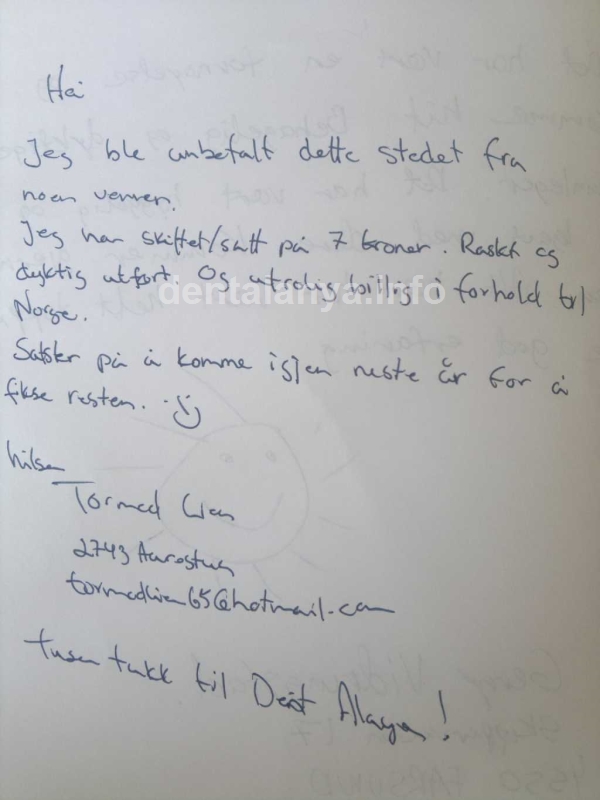 Hei
Jeg ble anbefalt dette stedet fra
noen venner.
Jeg har skiftet/satt på 7 kroner. Raskt og
dyktig utført. Og utrolig billig i forhold til
Norge.
Satser på å komme igjen neste år for å
fikse resten. :)
hilsen
Tormod Lien
2743 Harestua
tormodlien65@hotmail.com
tusen takk til Dent Alanya!
dentalanya.info